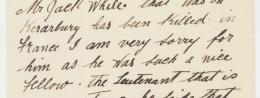 Mr Jack White that was on
Herarbury has been killed in
France I am very sorry for
him as he was such a nice
fellow. the leutenant that is
he said that